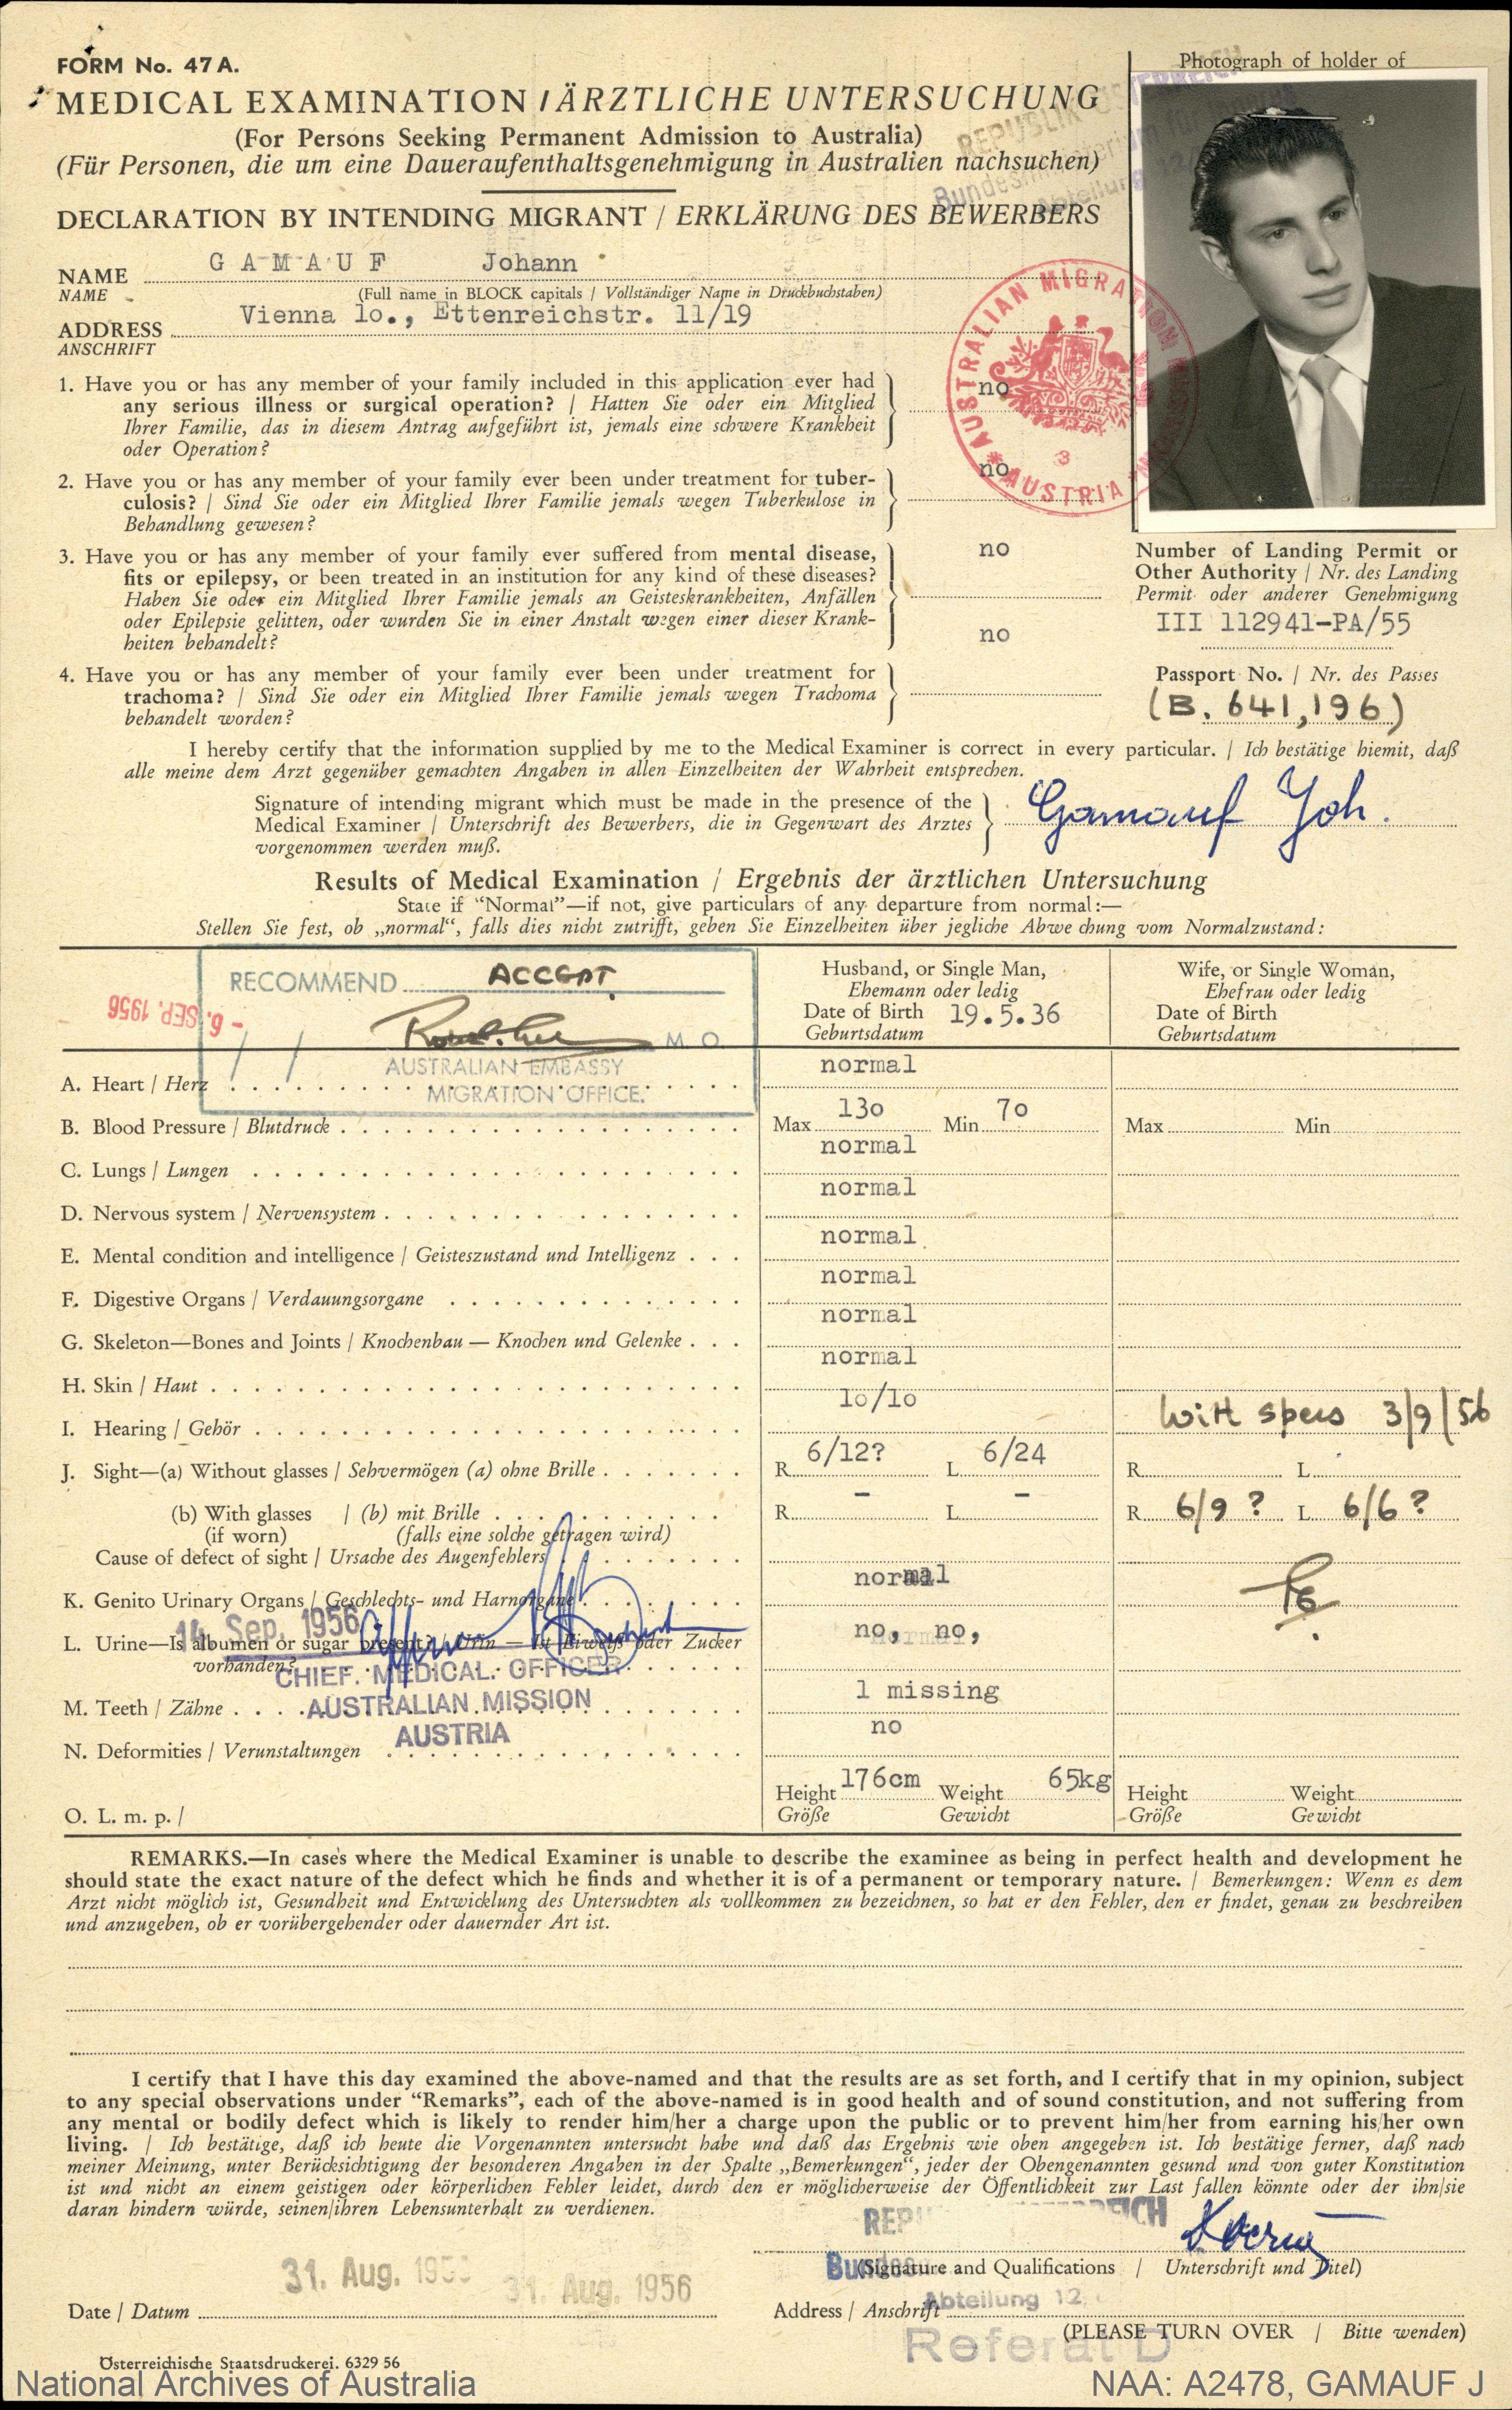 FORM No. 47 A.
Photograph of holder of
MEDICAL EXAMINATION / ÄRZTLICHE UNTERSUCHUNG
(For Persons Seeking Permanent Admission to Australia)
(Für Personen, die um eine Daueraufenthaltsgenehmigung in Australien nachsuchen)
REPUBLIK
DECLARATION BY INTENDING MIGRANT / ERKLÄRUNG DES BEWERBERS
NAME G A M A U F Johann
NAME (Full name in BLOCK capitals / Vollständiger Name in Druckbuchstaben)
ADDRESS Vienna 1o., Ettenreichstr. 11/19
ANSCHRIFT
AUSTRALIAN MIGRATION
3
AUSTRIA
1. Have you or has any member of your family included in this application ever had
any serious illness or surgical operation? / Hatten Sie oder ein Mitglied
Ihrer Familie, das in diesem Antrag aufgeführt ist, jemals eine schwere Krankheit
oder Operation?
no
2. Have you or has any member of your family ever been under treatment for tuber-
culosis? / Sind Sie oder ein Mitglied Ihrer Familie jemals wegen Tuberkulose in
Behandlung gewesen?
no
3. Have you or has any member of your family ever suffered from mental disease,
fits or epilepsy, or been treated in an institution for any kind of these diseases?
Haben Sie oder ein Mitglied Ihrer Familie jemals an Geisteskrankheiten, Anfällen
oder Epilepsie gelitten, oder wurden Sie in einer Anstalt wegen einer dieser Krank-
heiten behandelt?
no
4. Have you or has any member of your family ever been under treatment for
trachoma? / Sind Sie oder ein Mitglied Ihrer Familie jemals wegen Trachoma
behandelt worden?
no
Number of Landing Permit or
Other Authority / Nr. des Landing
Permit oder anderer Genehmigung
III 112941-PA/55
Passport No. / Nr. des Passes
(B. 641,196)
I hereby certify that the information supplied by me to the Medical Examiner is correct in every particular. / Ich bestätige hiemit, daß
alle meine dem Arzt gegenüber gemachten Angaben in allen Einzelheiten der Wahrheit entsprechen.
Signature of intending migrant which must be made in the presence of the
Medical Examiner / Unterschrift des Bewerbers, die in Gegenwart des Arztes
vorgenommen werden muß.
Gamauf Joh.
Results of Medical Examination / Ergebnis der ärztlichen Untersuchung
State if "Normal"—if not, give particulars of any departure from normal:—
Stellen Sie fest, ob „normal“, falls dies nicht zutrifft, geben Sie Einzelheiten über jegliche Abwe chung vom Normalzustand:
RECOMMEND ACCEPT
- 6. SEP. 1956
M. O.
AUSTRALIAN EMBASSY
MIGRATION OFFICE.
Husband, or Single Man,
Ehemann oder ledig
Date of Birth 19.5.36
Geburtsdatum
Wife, or Single Woman,
Ehefrau oder ledig
Date of Birth
Geburtsdatum
A. Heart / Herz normal
B. Blood Pressure / Blutdruck Max 13o Min 7o Max Min
C. Lungs / Lungen normal
D. Nervous system / Nervensystem normal
E. Mental condition and intelligence / Geisteszustand und Intelligenz normal
F. Digestive Organs / Verdauungsorgane normal
G. Skeleton—Bones and Joints / Knochenbau — Knochen und Gelenke normal
H. Skin / Haut normal
I. Hearing / Gehör 1o/1o With specs 3/9/56
J. Sight—(a) Without glasses / Sehvermögen (a) ohne Brille R 6/12? L 6/24 R L
(b) With glasses / (b) mit Brille R - L - R 6/9 ? L 6/6 ?
(if worn) (falls eine solche getragen wird)
Cause of defect of sight / Ursache des Augenfehlers
K. Genito Urinary Organs / Geschlechts- und Harnorgane normal
14 Sep. 1956
L. Urine—Is albumen or sugar present? / Urin — Ist Eiweiß oder Zucker
vorhanden? no, no,
CHIEF MEDICAL OFFICER
AUSTRALIAN MISSION
AUSTRIA
M. Teeth / Zähne 1 missing
N. Deformities / Verunstaltungen no
O. L. m. p. /
Height 176cm Weight 65kg Height Weight
Größe Gewicht Größe Gewicht
REMARKS.—In cases where the Medical Examiner is unable to describe the examinee as being in perfect health and development he
should state the exact nature of the defect which he finds and whether it is of a permanent or temporary nature. / Bemerkungen: Wenn es dem
Arzt nicht möglich ist, Gesundheit und Entwicklung des Untersuchten als vollkommen zu bezeichnen, so hat er den Fehler, den er findet, genau zu beschreiben
und anzugeben, ob er vorübergehender oder dauernder Art ist.
I certify that I have this day examined the above-named and that the results are as set forth, and I certify that in my opinion, subject
to any special observations under "Remarks", each of the above-named is in good health and of sound constitution, and not suffering from
any mental or bodily defect which is likely to render him/her a charge upon the public or to prevent him/her from earning his/her own
living. / Ich bestätige, daß ich heute die Vorgenannten untersucht habe und daß das Ergebnis wie oben angegeben ist. Ich bestätige ferner, daß nach
meiner Meinung, unter Berücksichtigung der besonderen Angaben in der Spalte „Bemerkungen“, jeder der Obengenannten gesund und von guter Konstitution
ist und nicht an einem geistigen oder körperlichen Fehler leidet, durch den er möglicherweise der Öffentlichkeit zur Last fallen könnte oder der ihn/sie
daran hindern würde, seinen/ihren Lebensunterhalt zu verdienen.
(Signature and Qualifications / Unterschrift und Titel)
31. Aug. 31. Aug. 1956
Date / Datum
Address / Anschrift Abteilung 12
Referat D
(PLEASE TURN OVER / Bitte wenden)
Österreichische Staatsdruckerei. 6329 56
National Archives of Australia
NAA: A2478, GAMAUF J